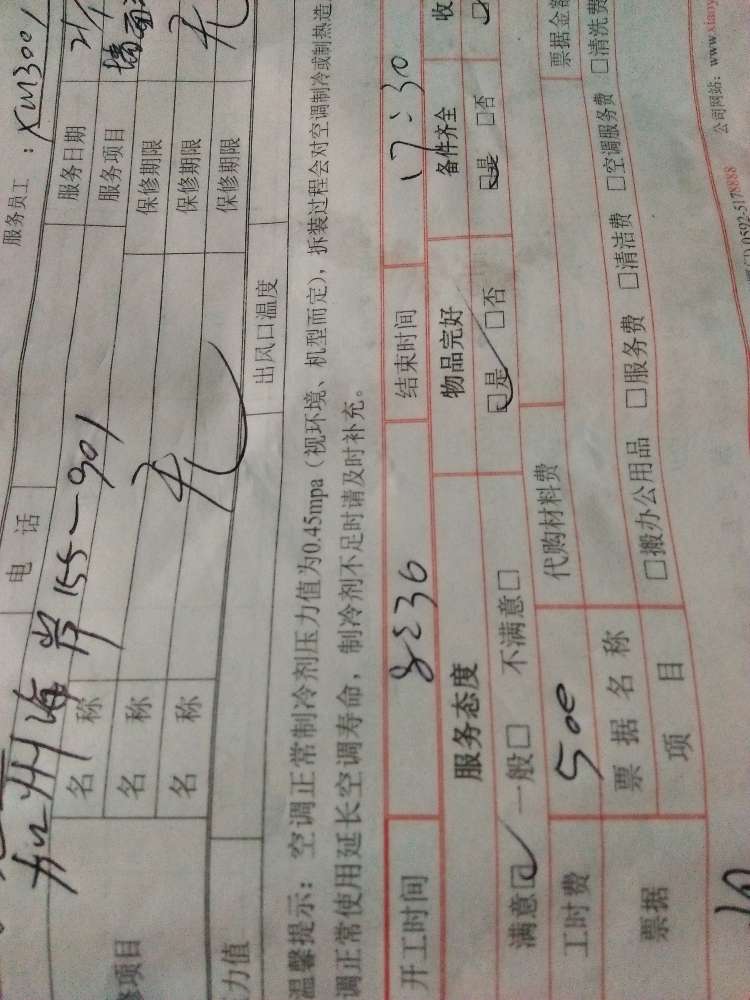 服务员工：XM3001
电话
服务日期
155-901
服务项目 墙面
名称 保修期限
名称 无 保修期限
名称 保修期限 无
修项目
力值 出风口温度
温馨提示：空调正常制冷剂压力值为0.45mpa（视环境、机型而定），拆装过程会对空调制冷或制热造
调正常使用延长空调寿命，制冷剂不足时请及时补充。
开工时间 8:30 结束时间 17:30
服务态度 物品完好 备件齐全 收
满意☑ 一般□ 不满意□ ☑是 □否 ☑是 □否
工时费 500 代购材料费 票据金额
票据 票据名称 □搬办公用品 □服务费 □清洁费 □空调服务费 □清洗费
项目
公司网站：www.xiaoy
0592-5178888